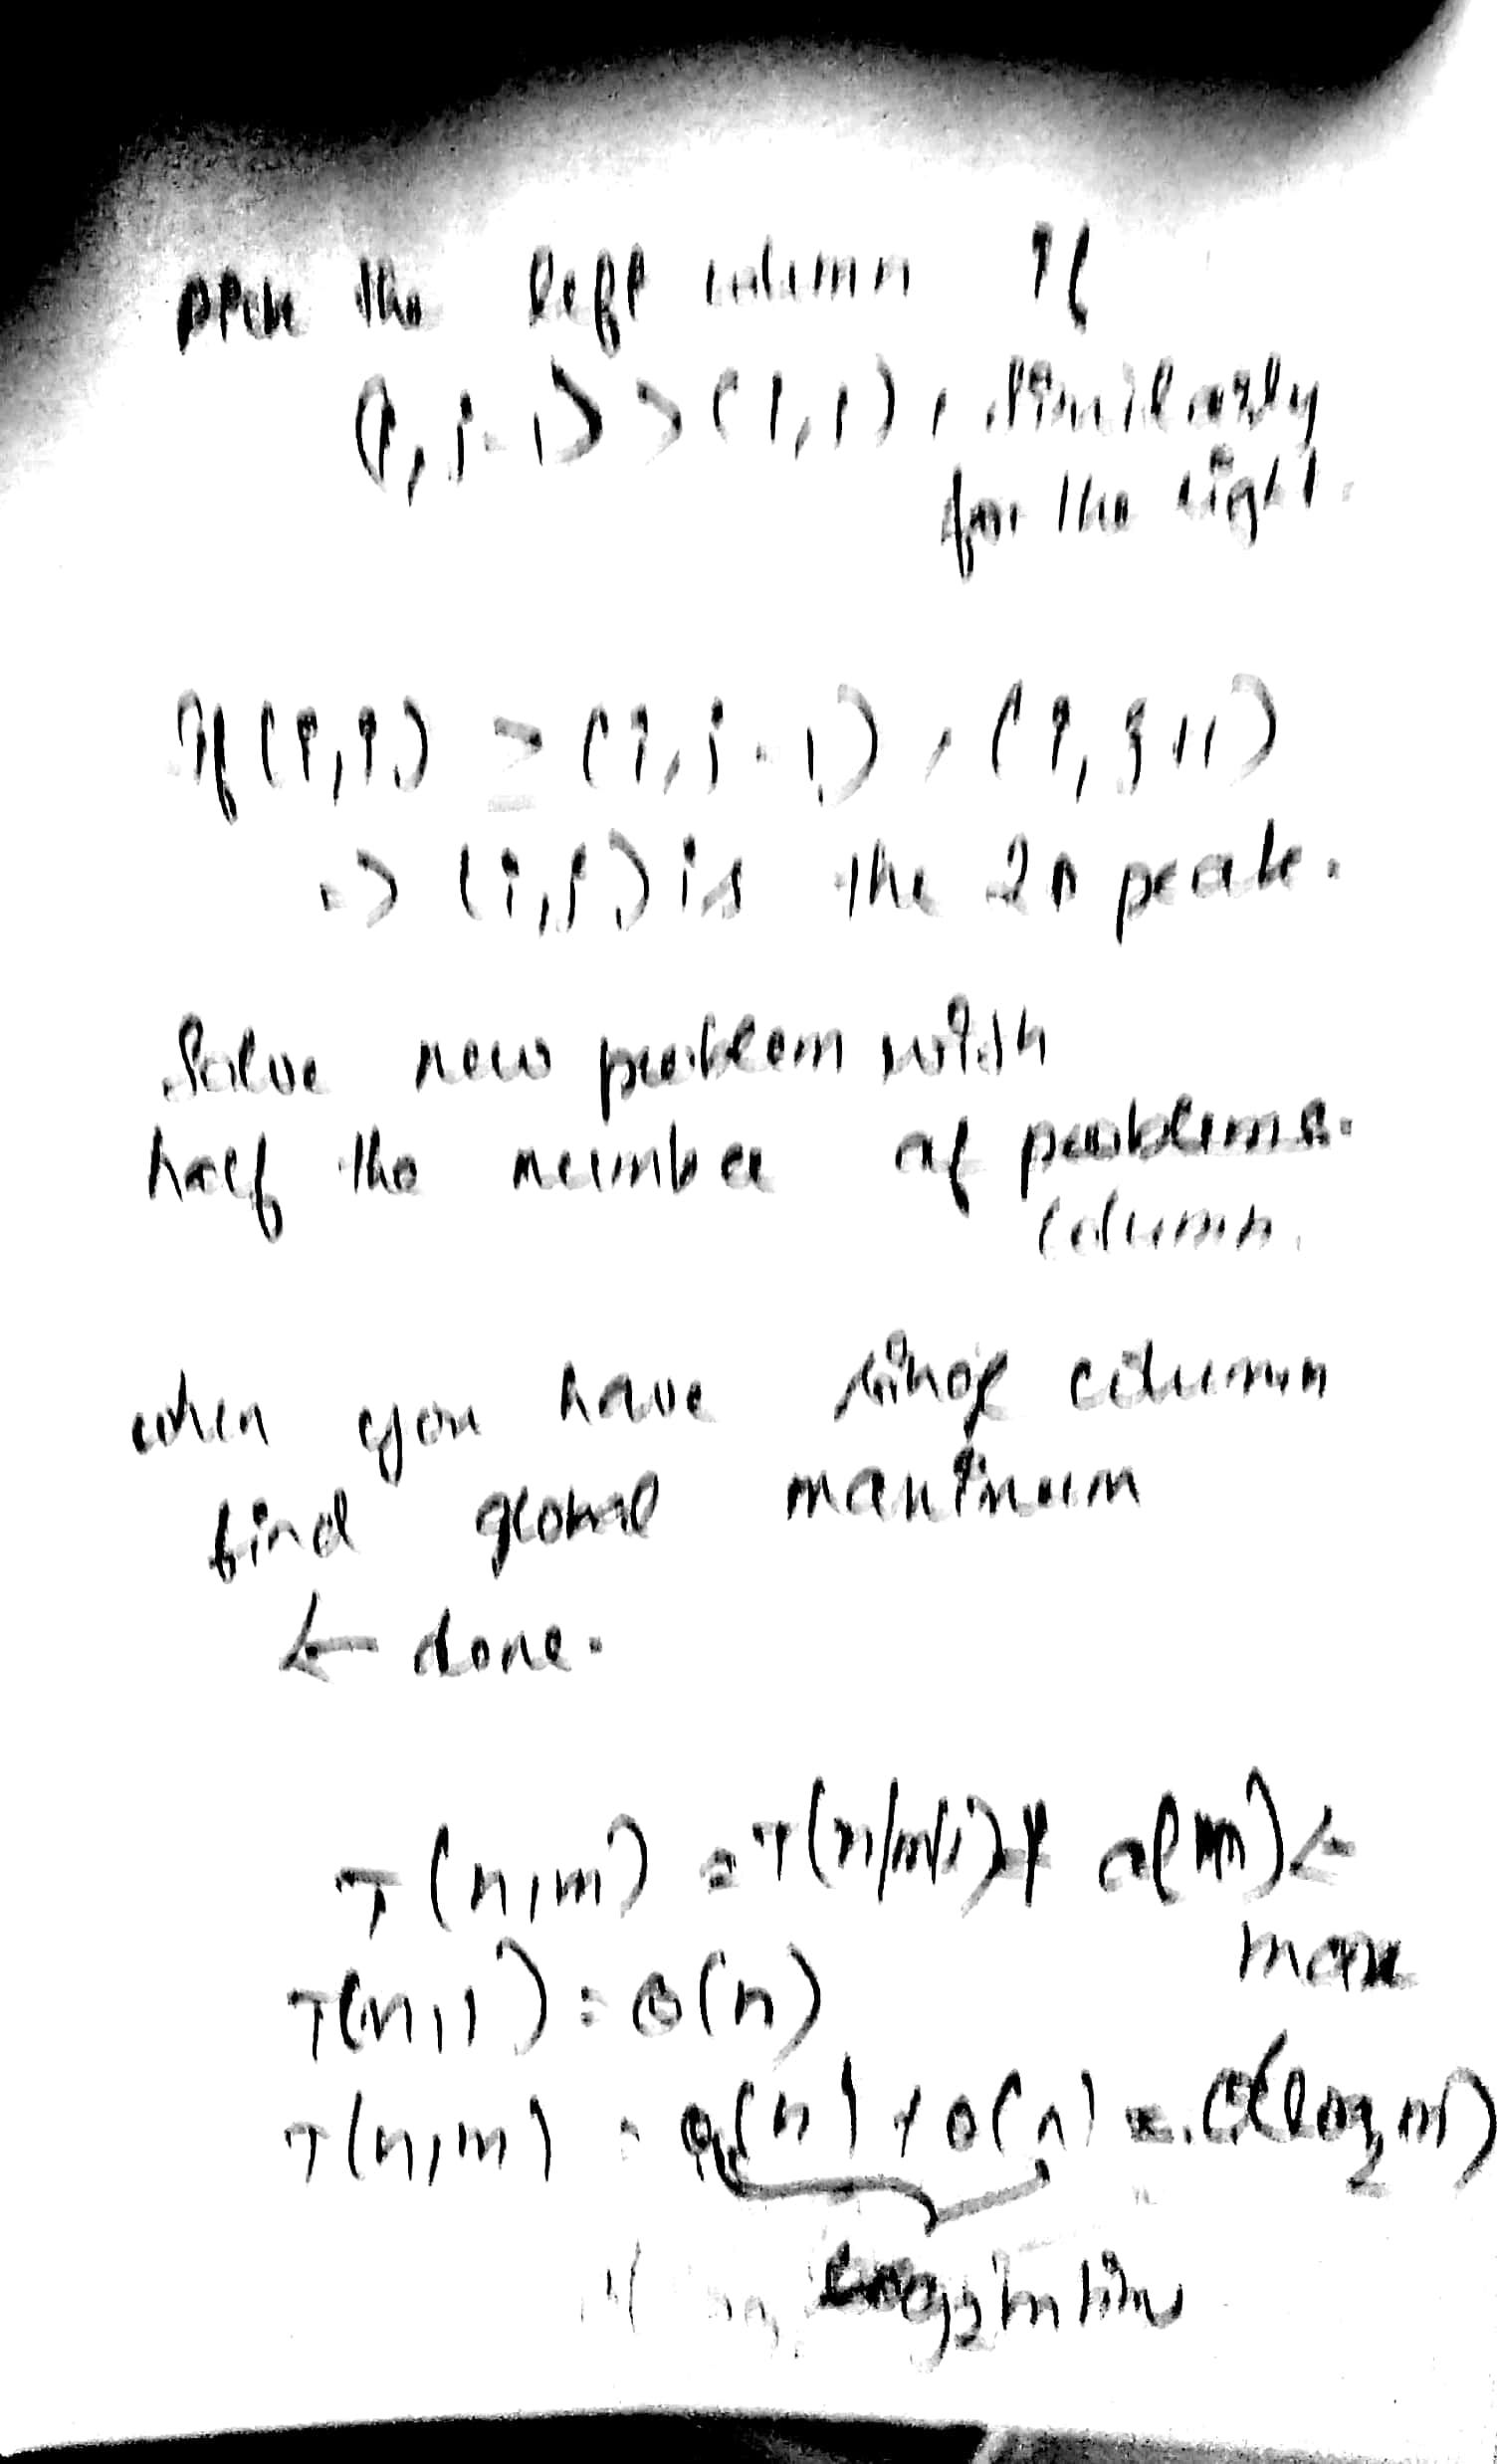 pick the left column if
(i, j-1) > (i, j), similarly
for the right.
If (i, j) ≥ (i, j-1), (i, j+1)
=> (i, j) is the 2D peak.
Solve new problem with
half the number of problems.
column.
when you have single column
find global maximum
← done.
T(n, m) = T(n, m/2) + O(n) ←
max
T(n, 1) = Θ(n)
T(n, m) = Θ(n) + Θ(n) = Θ(log₂ m)
log₂m time